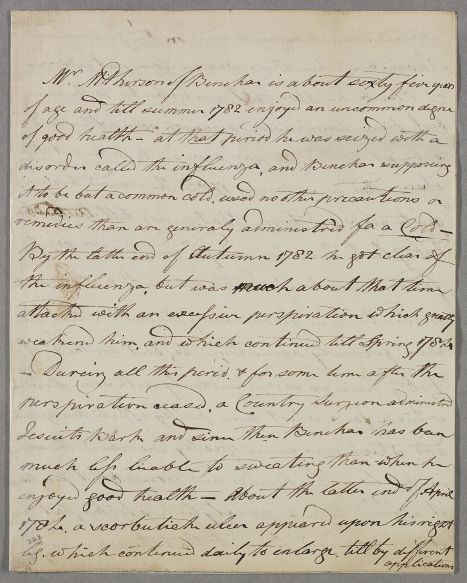 Mr McPherson of Benchar is about sixty five years
of age and till summer 1782 enjoyed an uncommon degree
of good health – at that period he was seized with a
disorder called the influenza, and Benchar supposing
it to be but a common cold, used no other precautions or
remedies than are generaly administred for a Cold –
By the latter end of Autumn 1782 he got clear of
the influenza, but was much about that time
attacked with an excessive perspiration which greatly
weakened him, and which continued till Spring 1784
– During all this period & for some time after the
perspiration ceased, a Country Surgeon administred
Jesuits Bark and since then Benchar has been
much less liable to sweating than when he
enjoyed good health – About the latter end of April
1784, a scorbutick ulcer appeared upon his right
leg, which continued daily to enlarge, till by different
applications